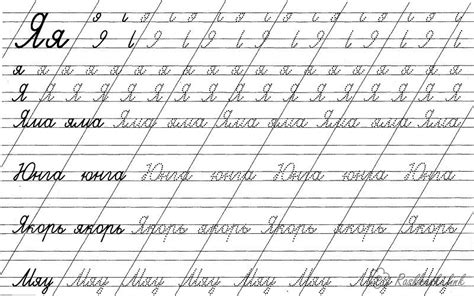 Яя
я я я я я я я я я я я я я я я я я я я я
Я Я Я Я Я Я Я Я Я Я Я Я Я Я Я Я Я
Яма яма Яма яма Яма яма Яма яма Яма
Юнга юнга Юнга юнга Юнга юнга Юнга
Якорь якорь Якорь якорь Якорь якорь Якорь
Мяу Мяу Мяу Мяу Мяу Мяу Мяу